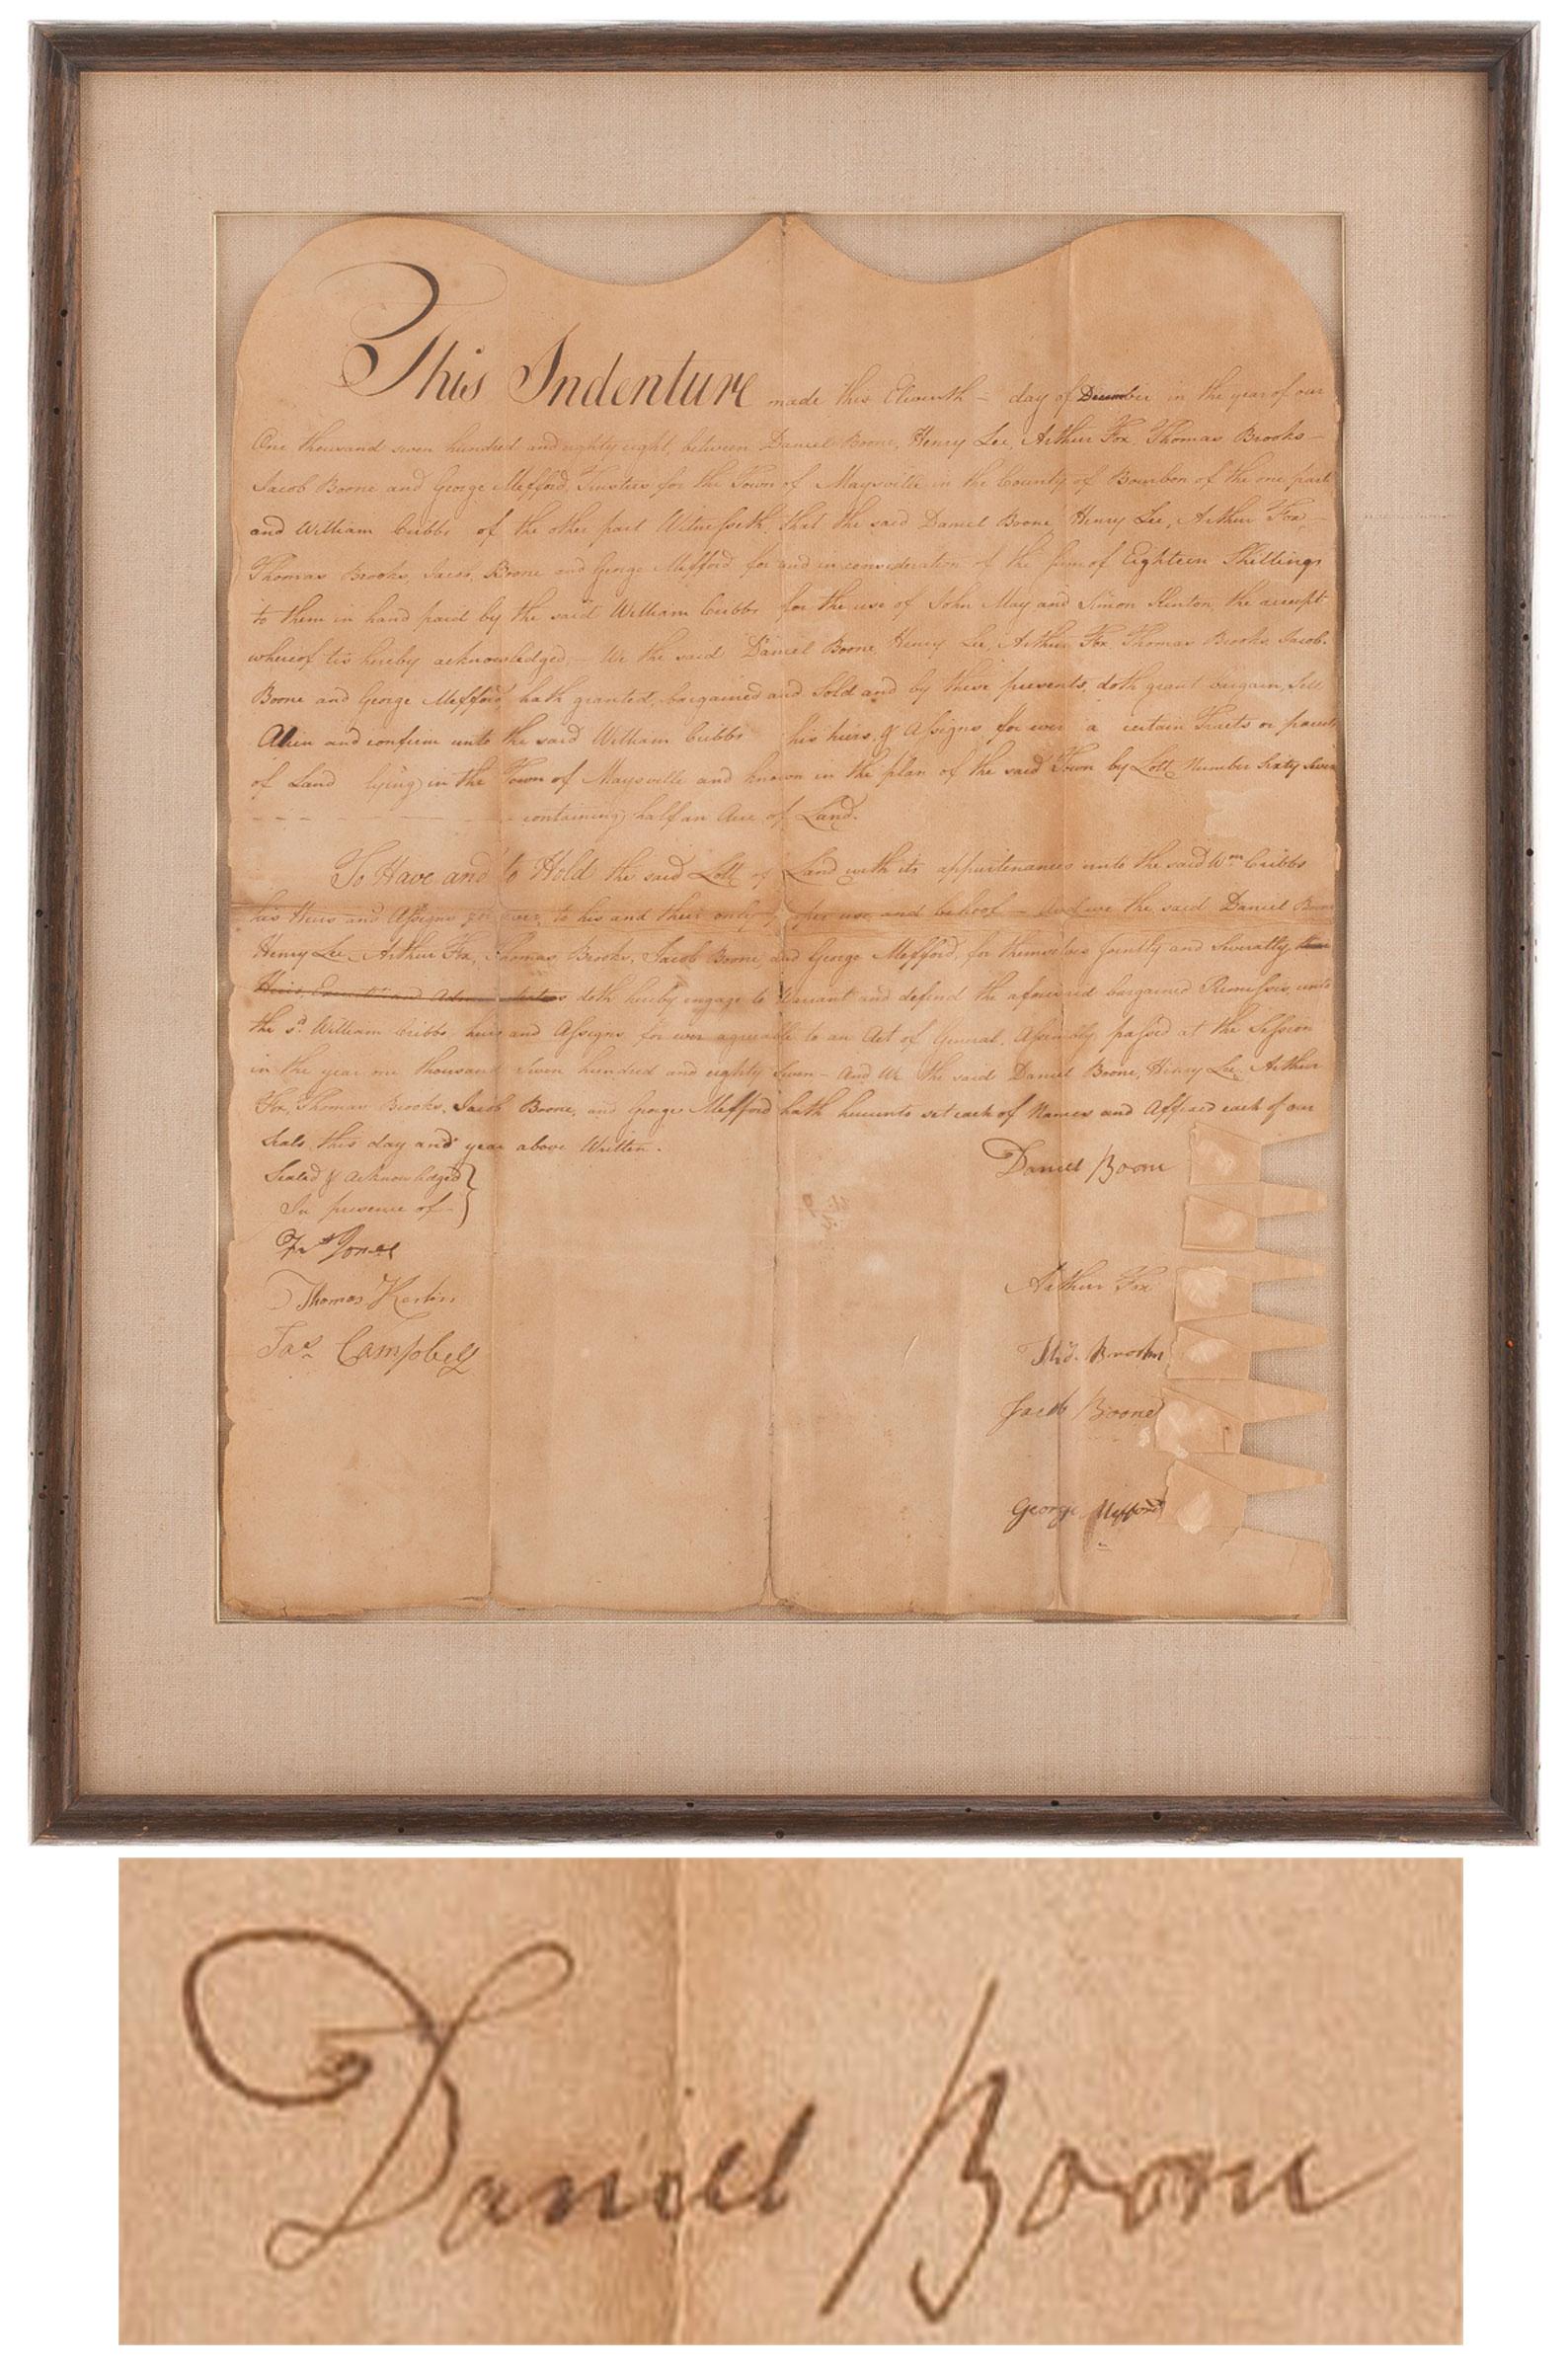 This Indenture made this Eleventh – day of December in the year of our
One thousand seven hundred and eighty eight, between Daniel Boone, Henry Lee, Arthur Fox, Thomas Brooks –
Jacob Boone and George Mefford, Trustees for the Town of Maysville in the County of Bourbon of the one part
and William Cribbs of the other part Witnesseth, that the said Daniel Boone, Henry Lee, Arthur Fox, –
Thomas Brooks, Jacob Boone and George Mefford, for and in consideration of the sum of Eighteen Shillings
to them in hand paid by the said William Cribbs for the use of John May and Simon Kenton, the receipt
whereof tis hereby acknowledged, – We the said Daniel Boone, Henry Lee, Arthur Fox Thomas Brooks, Jacob
Boone and George Mefford, hath granted, bargained and Sold and by these presents, doth grant bargain, Sell
Alien and confirm unto the said William Cribbs his heirs, & Assigns for ever a certain Tracts or parcels
of Land lying in the Town of Maysville and known in the plan of the said Town by Lott Number Sixty Seven
containing half an Acre of Land.
To Have and to Hold the said Lott of Land with its appurtenances unto the said Wm Cribbs
his Heirs and Assigns for ever, to his and their only proper use and behoof – And we the said Daniel Boone
Henry Lee, Arthur Fox, Thomas Brooks, Jacob Boone, and George Mefford, for themselves Jointly and Severally
Heirs, and doth hereby engage to Warrant and defend the aforesaid bargained Premisses, unto
the sd. William Cribbs heirs and Assigns for ever agreeable to an Act of General Assembly passed at the Session
in the year one thousand Seven hundred and eighty Seven – And We the said Daniel Boone, Henry Lee, Arthur
Fox, Thomas Brooks, Jacob Boone, and George Mefford hath hereunto set each of Names and Affixed each of our
Seals this day and year above Written.
Sealed & Acknowledged
In presence of
Daniel Boone
Jones
Thomas
Jas Campbell
Arthur Fox
Tho. Brooks
Jacob Boone
George Mefford
Daniel Boone